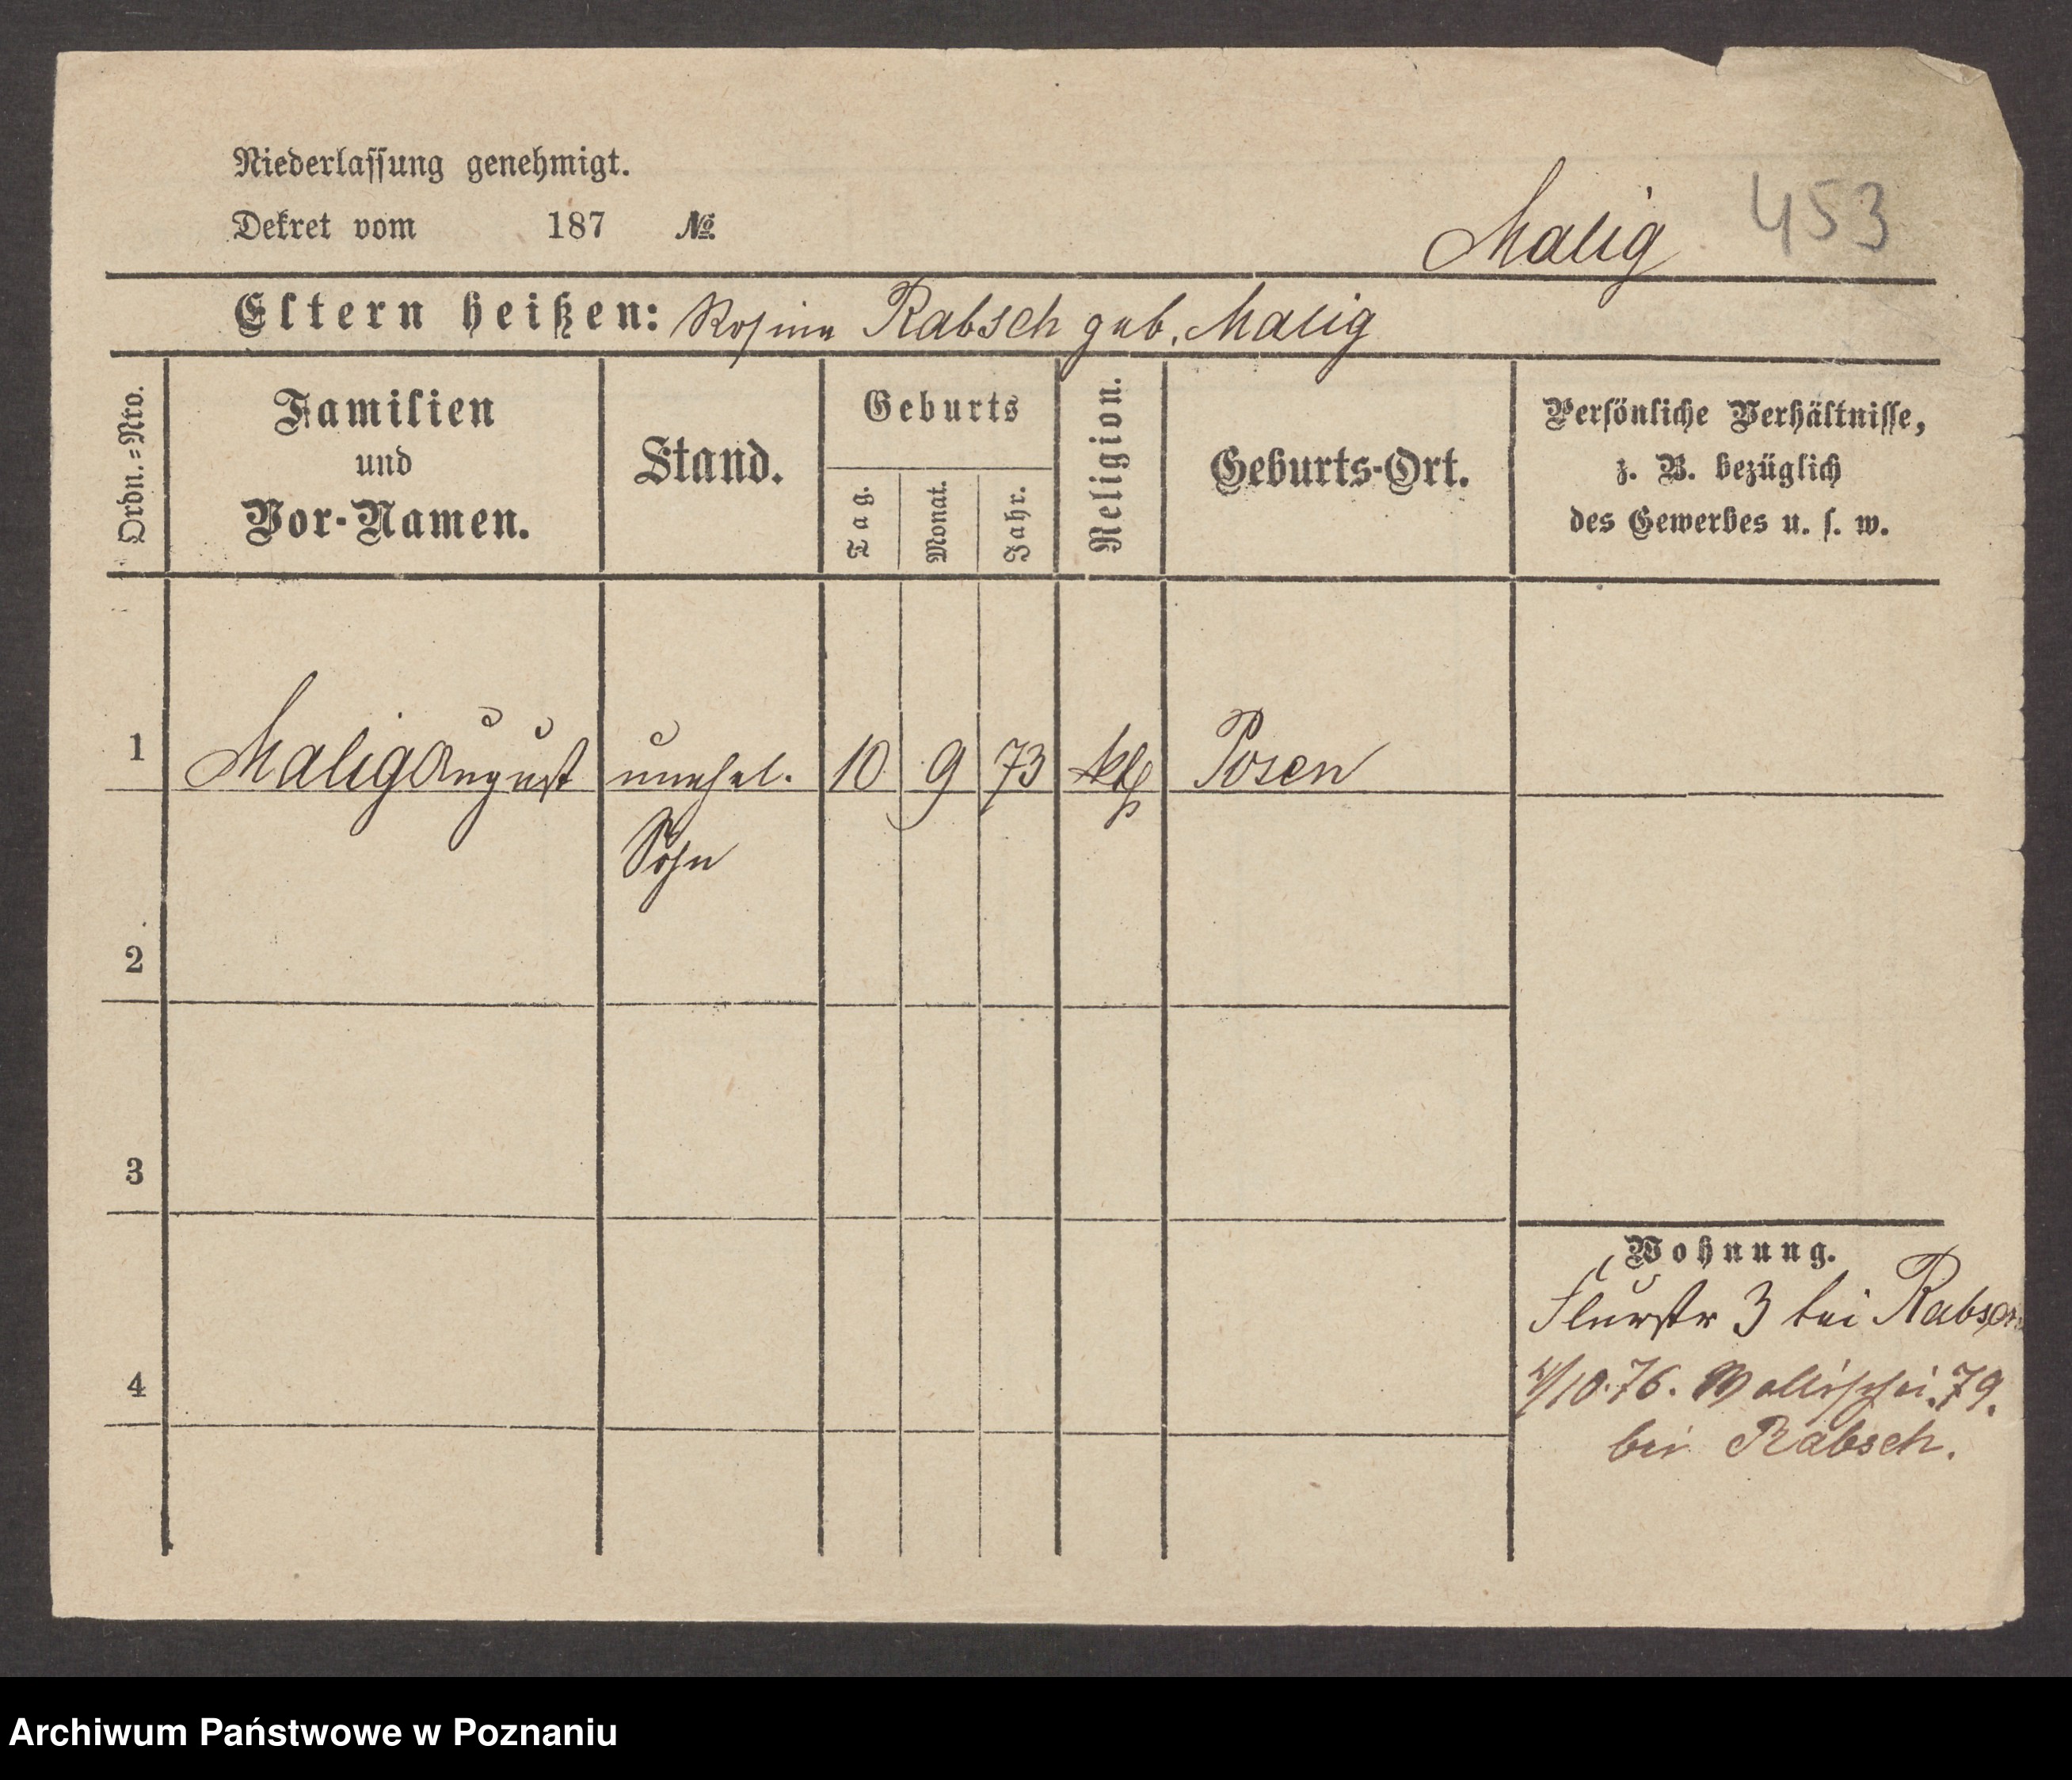 Niederlassung genehmigt.
Dekret vom 187 №
Malig 453
Eltern heißen: Rosina Rabsch geb. Malig
Ordn.=Nro.
Familien
und
Vor-Namen.
Stand.
Geburts
Tag.
Monat.
Jahr.
Religion.
Geburts-Ort.
Persönliche Verhältnisse,
z. B. bezüglich
des Gewerbes u. s. w.
1 Malig August unehel. 10 9 73 kth Posen
Sohn
2
3
Wohnung.
Flurstr 3 bei Rabsch
4
/10.76. Wallischei.79.
bei Rabsch.
Archiwum Państwowe w Poznaniu